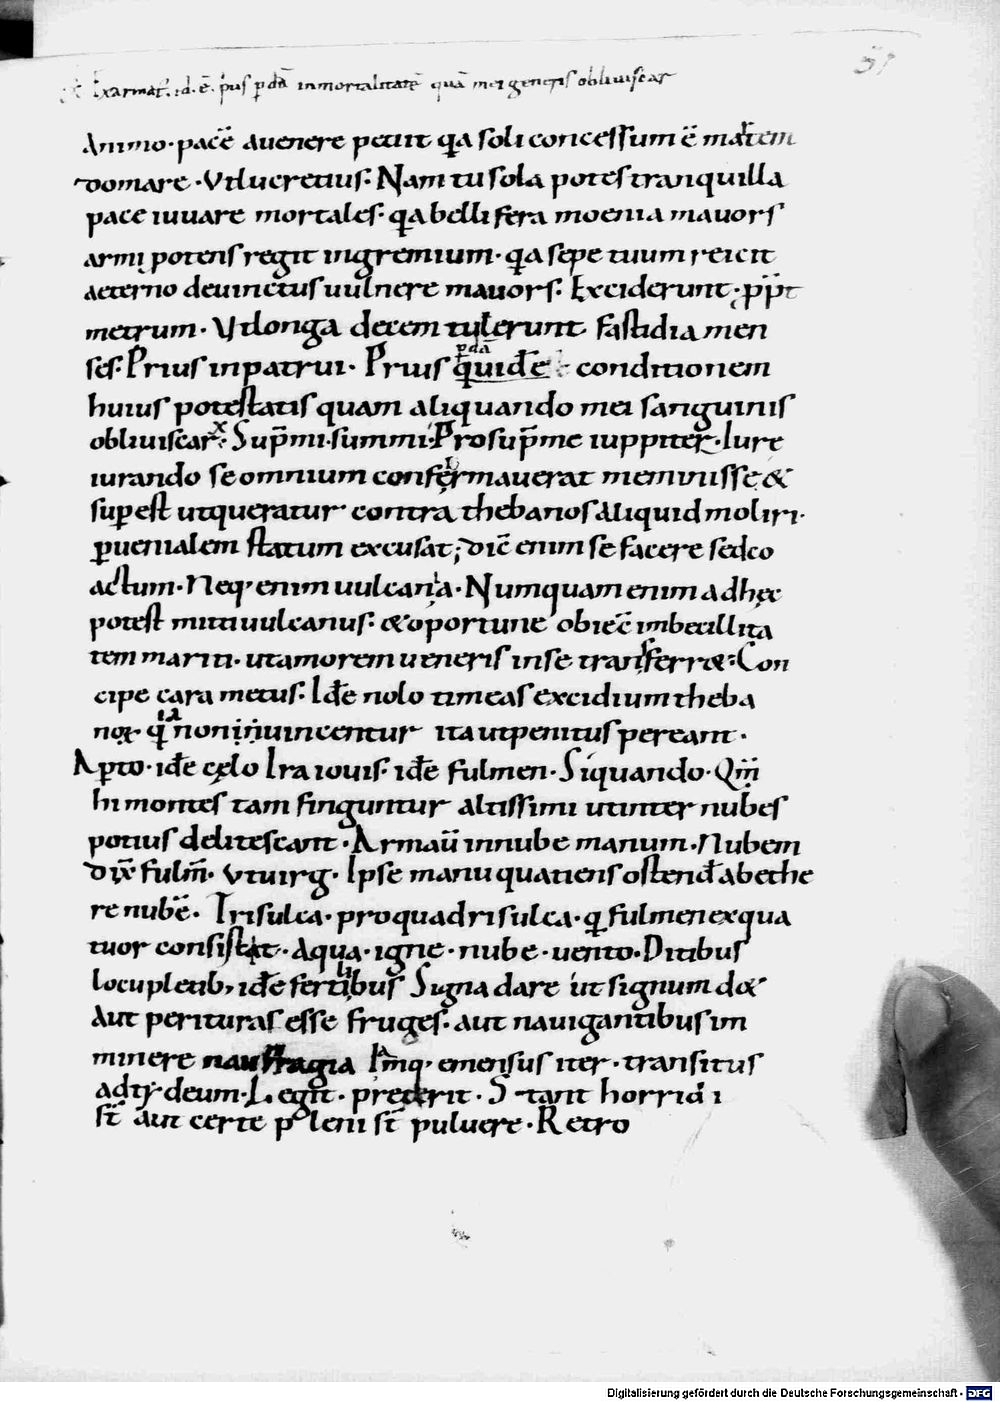 51
Exarmat͛. id. ē. p̄us p̄dā inmortalitatē quā mei generis obliuiscar
Animo· pacē auenere petiit qa soli concessum ē mar̄tem
domare · Vtlucretius: Nam tu sola potes tranquilla
pace iuuare mortales· qa belli fera moenia mauors
armi potens regit ingremium· qa sepe tuum reicit
aeterno deuinctus uulnere mauors: Exciderunt · pp̄t
metrum · Vt longa decem tulerunt fastidia men
ses· Prius inpatrui · Prius quidē conditionem
p̄dā
huius potestatis quam aliquando mei sanguinis
obliuiscarˣ: Sup̄mi· summi· Prosup̄me iuppiter· Iure
iurando se omnium confermauerat meminisse &
superest utqueratur contra thebanos aliquid moliri·
ꝑuenialem statum excusat; dic̄ enim se facere sedco
actum· Neq· enim uulcania· Numquam enim adhęc
potest miti uulcanus: & oportune obiec̄ imbecillita
tem mariti· utamorem ueneris inse transferr&: Con
cipe cara metus: Idē nolo timeas excidium theba
noꝝ· qia non inuincentur ita utpenitus pereant·
Aꝑto· idē cęlo Ira iouis· idē fulmen· Siquando· Qm̄
hi montes tam finguntur altissimi utinter nubes
potius delitescant· Armaū innube manum· Nubem
dix̄ fulm̄· Vtuirg· Ipse manu quatiens ostend̄ abethe
re nubē· Trisulca· proquadrisulca· q fulmen exqua
tuor consistat· Aqua· igne· nube· uento· Ditibus
locupletib, idē fertilibus Signa dare ut signum d&
Aut perituras esse fruges· aut nauigantibus im
minere naufragia Iāmq· emensus iter· transitus
adtꝰ· deum· Legit· preterit· S tant horridi
st̄ aut certe p leni st̄ puluere· Retro
Digitalisierung gefördert durch die Deutsche Forschungsgemeinschaft - DFG